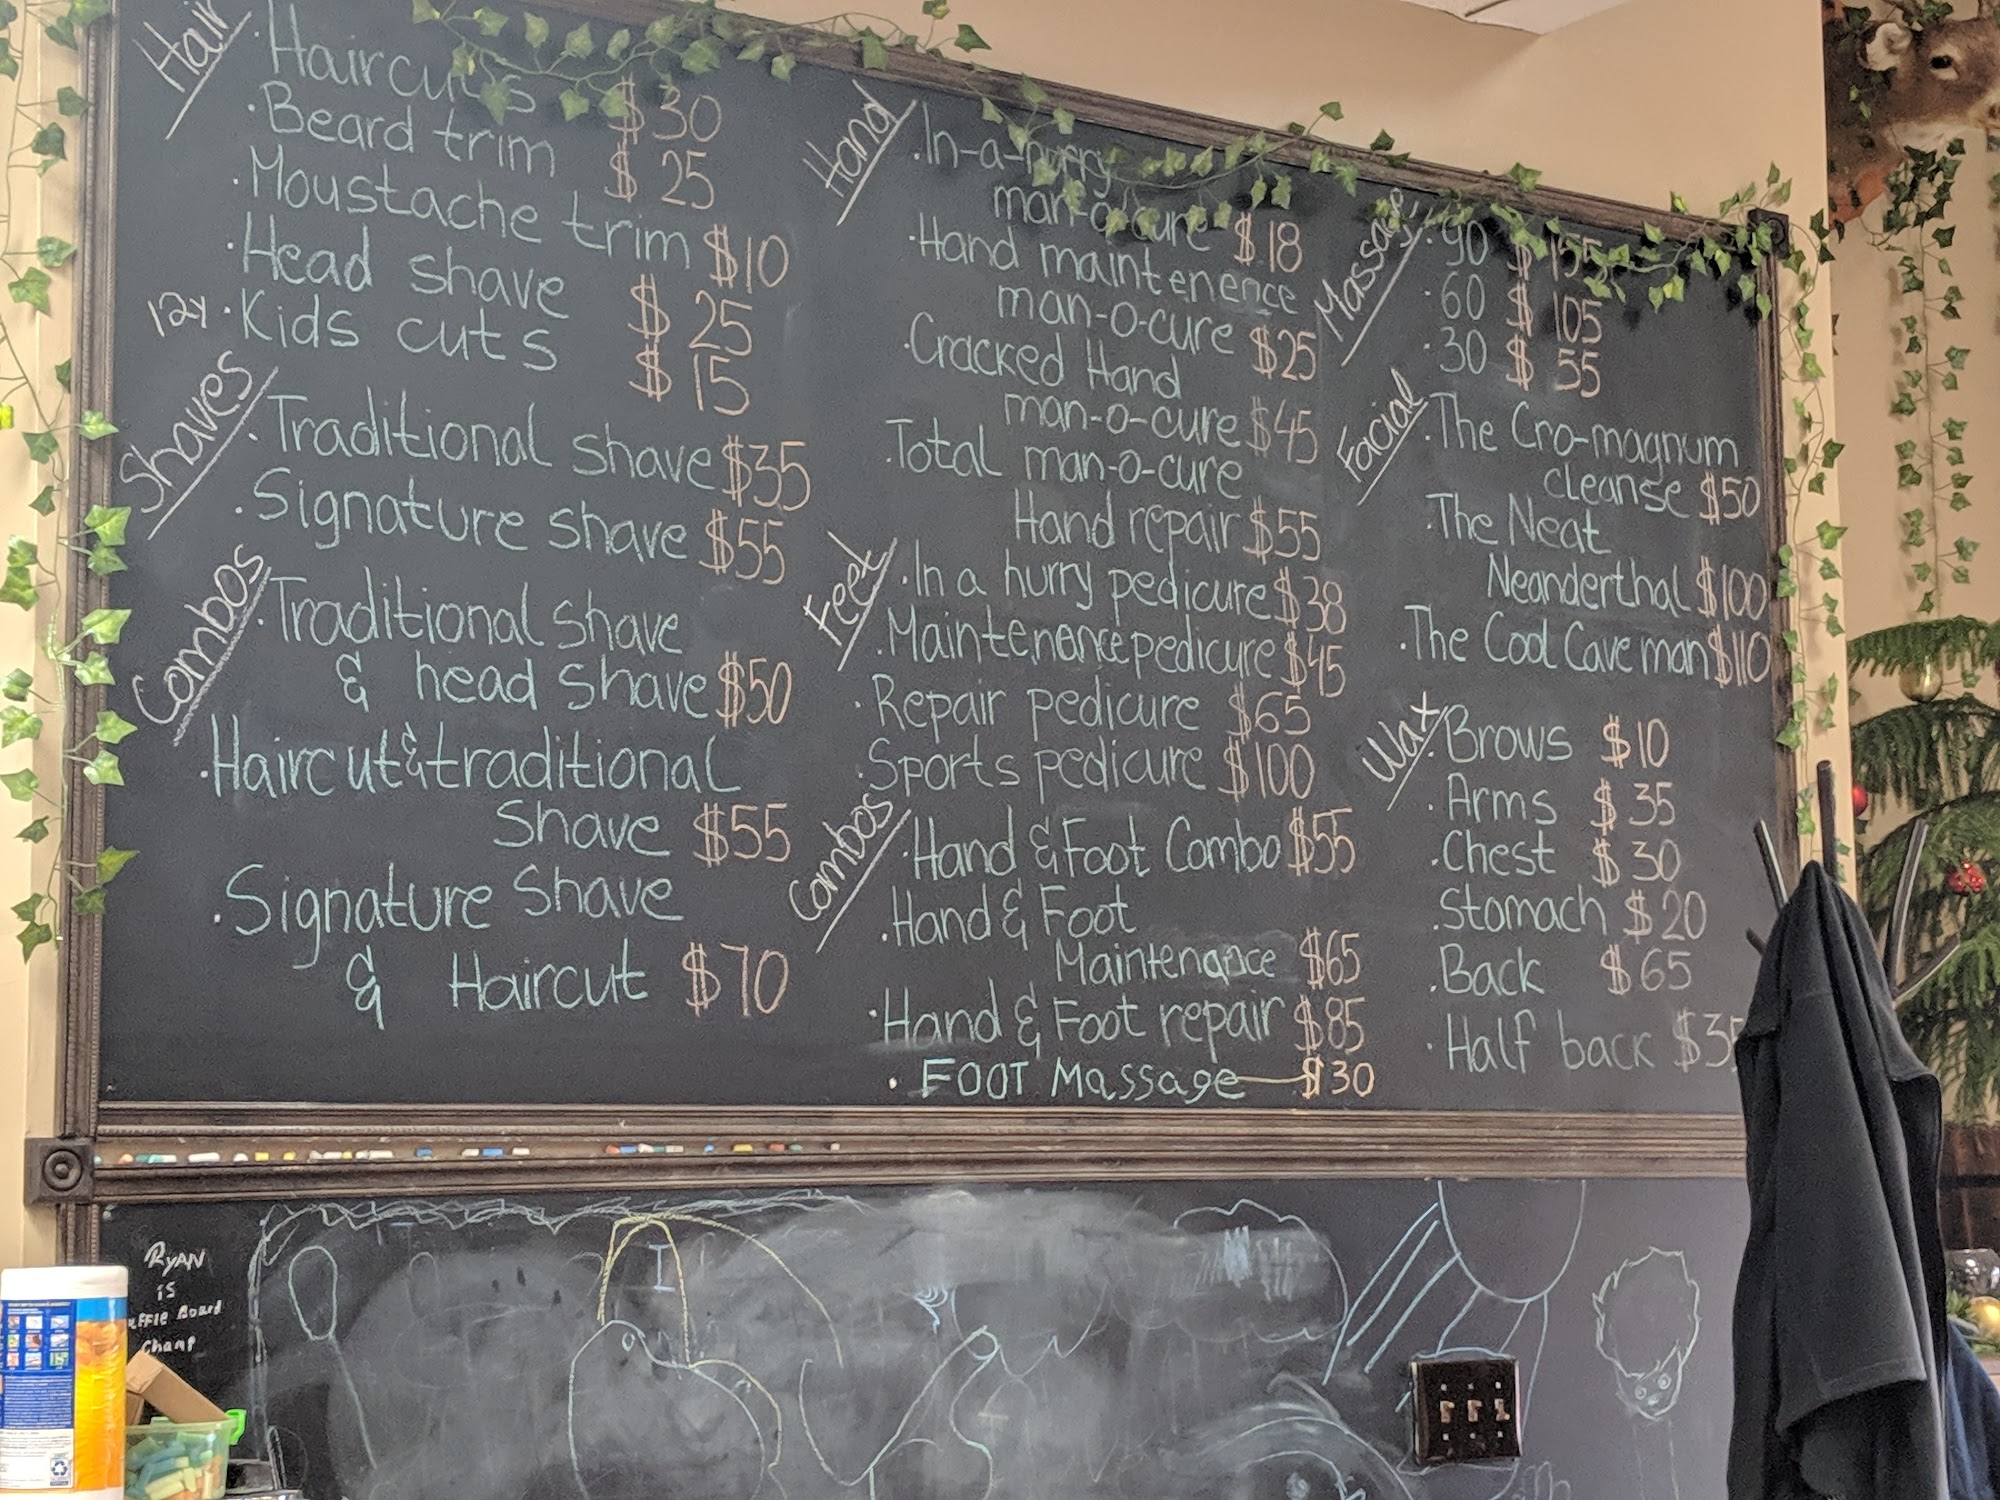 Hair
Haircuts $30
Beard trim $25
Moustache trim $10
Head shave $25
12y Kids cuts $15
Shaves
Traditional shave $35
Signature shave $55
Combos
Traditional shave
& head shave $50
Haircut & traditional
Shave $55
Signature Shave
& Haircut $70
Hand
In-a-hurry
man-o-cure $18
Hand maintenence
man-o-cure $25
Cracked Hand
man-o-cure $45
Total man-o-cure
Hand repair $55
Feet
In a hurry pedicure $38
Maintenance pedicure $45
Repair pedicure $65
Sports pedicure $100
Combos
Hand & Foot Combo $55
Hand & Foot
Maintenance $65
Hand & Foot repair $85
FOOT Massage $30
Massage
90 $155
60 $105
30 $55
Facial
The Cro-magnum
cleanse $50
The Neat
Neanderthal $100
The Cool Cave man $110
Wax
Brows $10
Arms $35
Chest $30
Stomach $20
Back $65
Half back $35
RYAN
is
Board
Champ